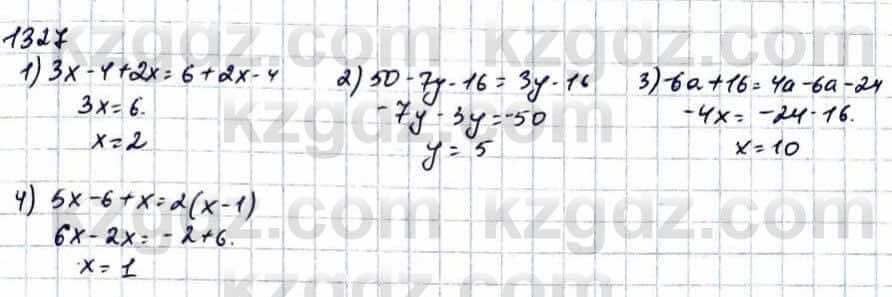 1327
1) 3x-4+2x=6+2x-4
3x=6.
x=2
2) 50-7y-16=3y-16
-7y-3y=-50
y=5
3) -6a+16=4a-6a-24
-4x=-24-16.
x=10
4) 5x-6+x=2(x-1)
6x-2x=-2+6.
x=1
kzgdz.com